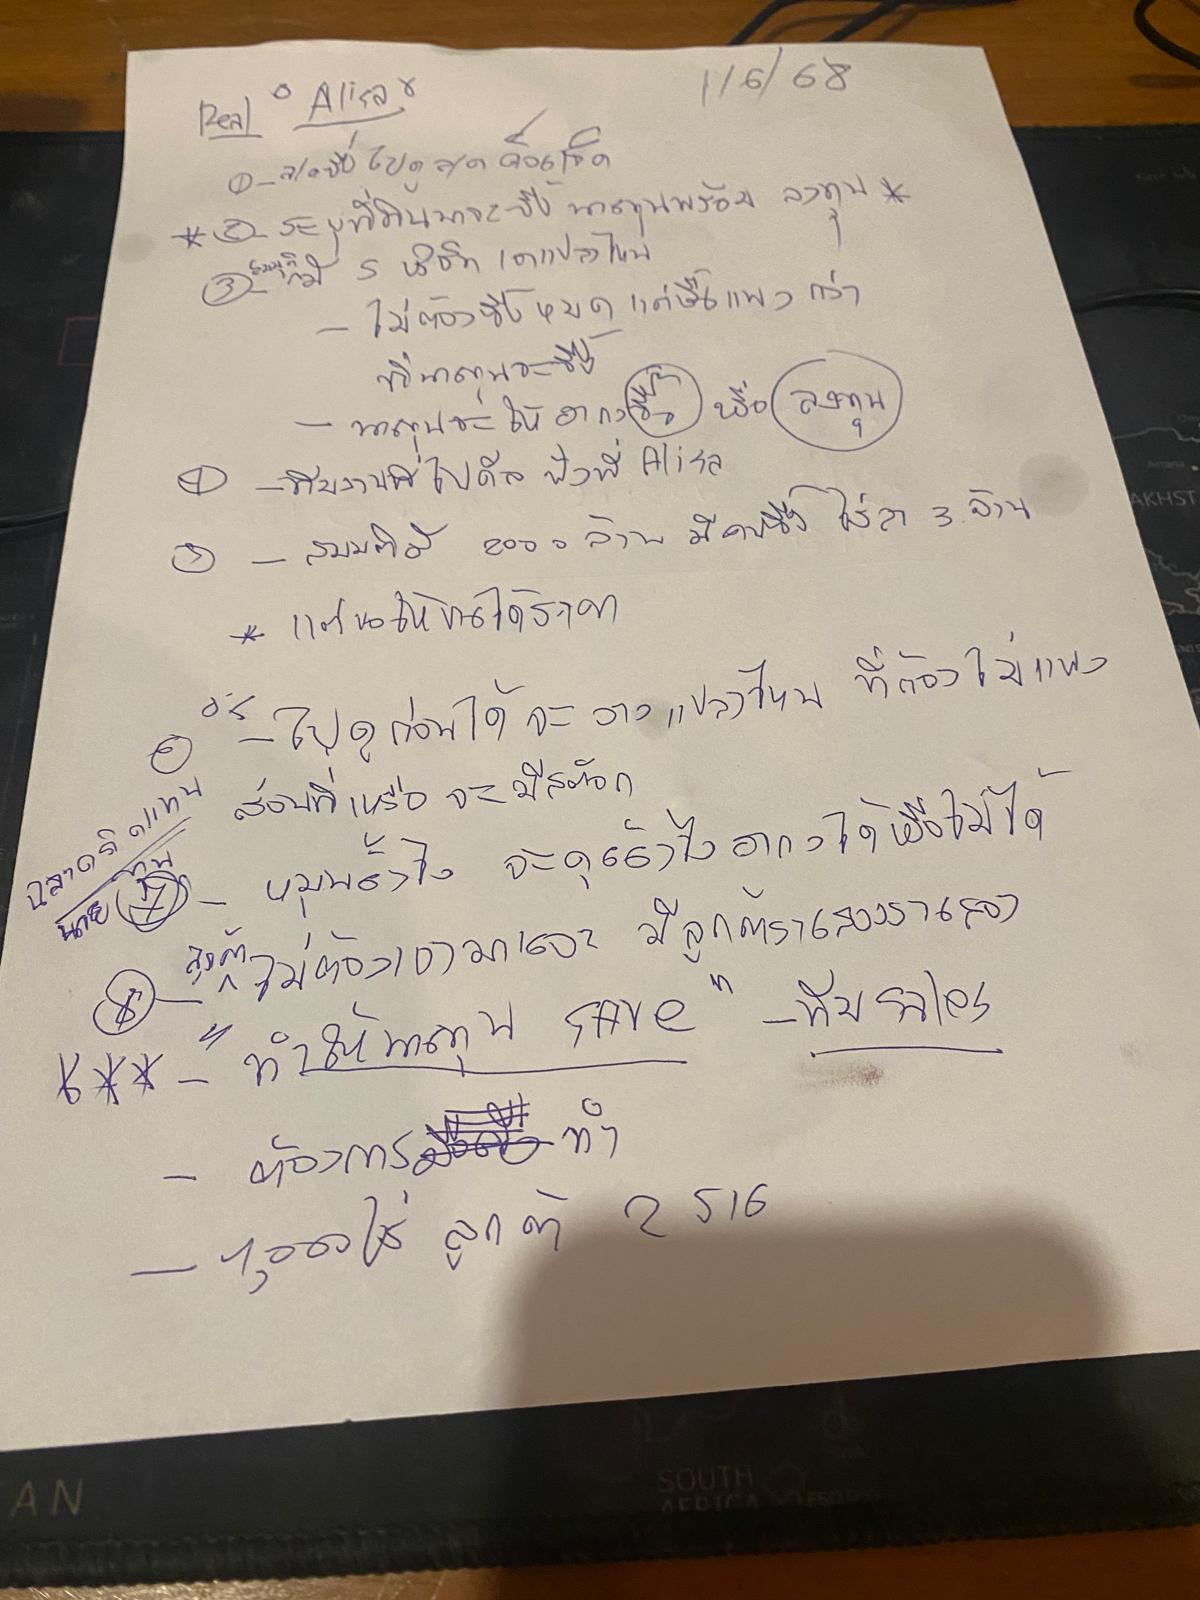 1/6/68
Real Alisa
① - ลงชื่อ ไปดู
* ② - ระบุที่ดินนาจะซื้อ นายทุนพร้อม ลงทุน *
③ - สมมุติ มี 5 เอาแปลงไหน
- ไม่ต้องซื้อหมด แต่ซื้อแพงกว่า
ที่นายทุนจะซื้อ
- นายทุนจะให้ อากงซื้อ หรือ ลงทุน
④ - ทีมงานที่ไปดีล ฟังพี่ Alisa
⑤ - สมมติมี 2000 ล้าน มีคนซื้อ ไร่ละ 3 ล้าน
* แต่ขอให้ขายได้ราคา
⑥ - ไปดูก่อนได้ จะ เอาแปลงไหน ที่ต้องไม่แพง
ส่วนที่เหลือ จะมีสต๊อก
ฉลาดคิดแทน
นายทุน
⑦ - หมุนยังไง จะดูยังไง อากงได้หรือไม่ได้
⑧ - ลูกค้า ไม่ต้องเอามาเยอะ มีลูกค้า
*** - "ทำให้นายทุน SAVE" - ทีม sales
- ต้องการ ทำ
- ลูกค้า 2 ราย